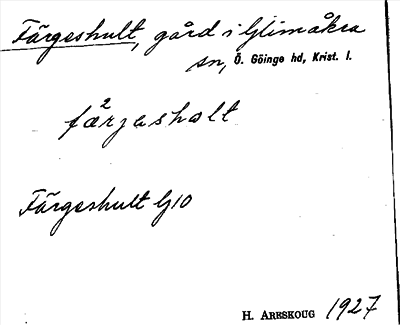 Färgeshult, gård i Glimåkra
sn, Ö. Göinge hd, Krist. l.
fæ²rjasholt
Färgeshult G10
H. Areskoug 1927